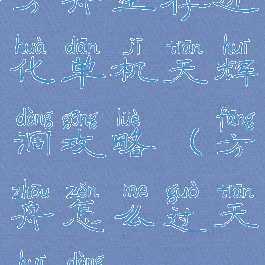 huà dān jī tiān huī
化单机天辉
dòng gōng lüè fāng
洞攻略（方
zhōu zěn me guò tiān
舟怎么过天
huī dòng